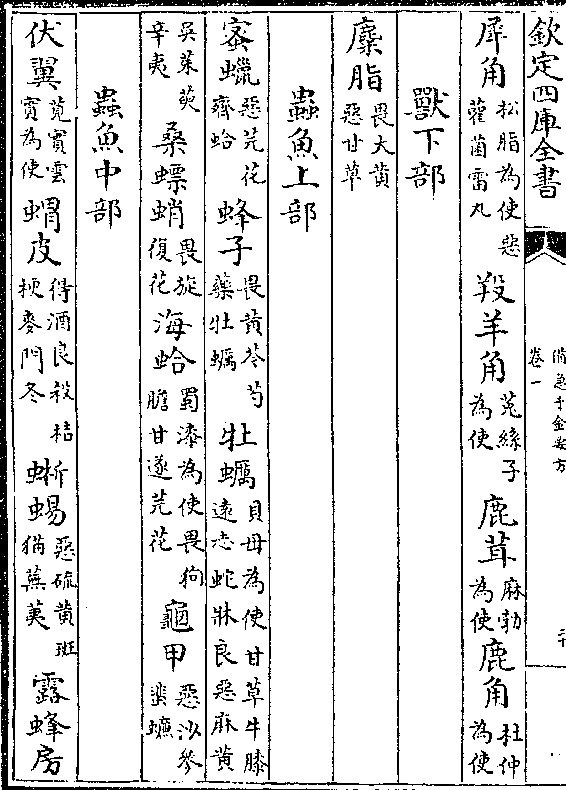 欽定四庫全書
備急千金要方
卷一
二十
犀角松脂為使惡雚菌雷丸 羖羊角菟絲子為使 鹿茸麻勃為使 鹿角杜仲為使
獸下部
麋脂畏大黄惡甘草
蟲魚上部
蜜蠟惡芫花齊蛤 蜂子畏黄芩芍藥牡蠣 牡蠣貝母為使甘草牛膝遠志蛇牀良惡麻黄
吳茱萸辛夷 桑螵蛸畏旋復花 海蛤蜀漆為使畏狗膽甘遂芫花 龜甲惡沙參蜚蠊
蟲魚中部
伏翼莧實雲實為使 蝟皮得酒良殺桔梗麥門冬 蜥蜴惡硫黄班猫蕪荑 露蜂房